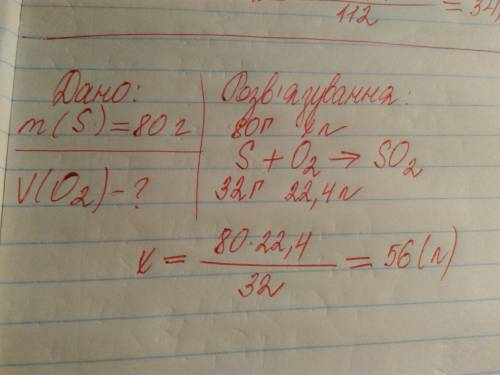 112 = 34
Дано:
m(S)=80г
V(O₂)-?
Розв'язування:
80г xл
S + O₂ → SO₂
32г 22,4л
x = 80·22,4 / 32 = 56(л)